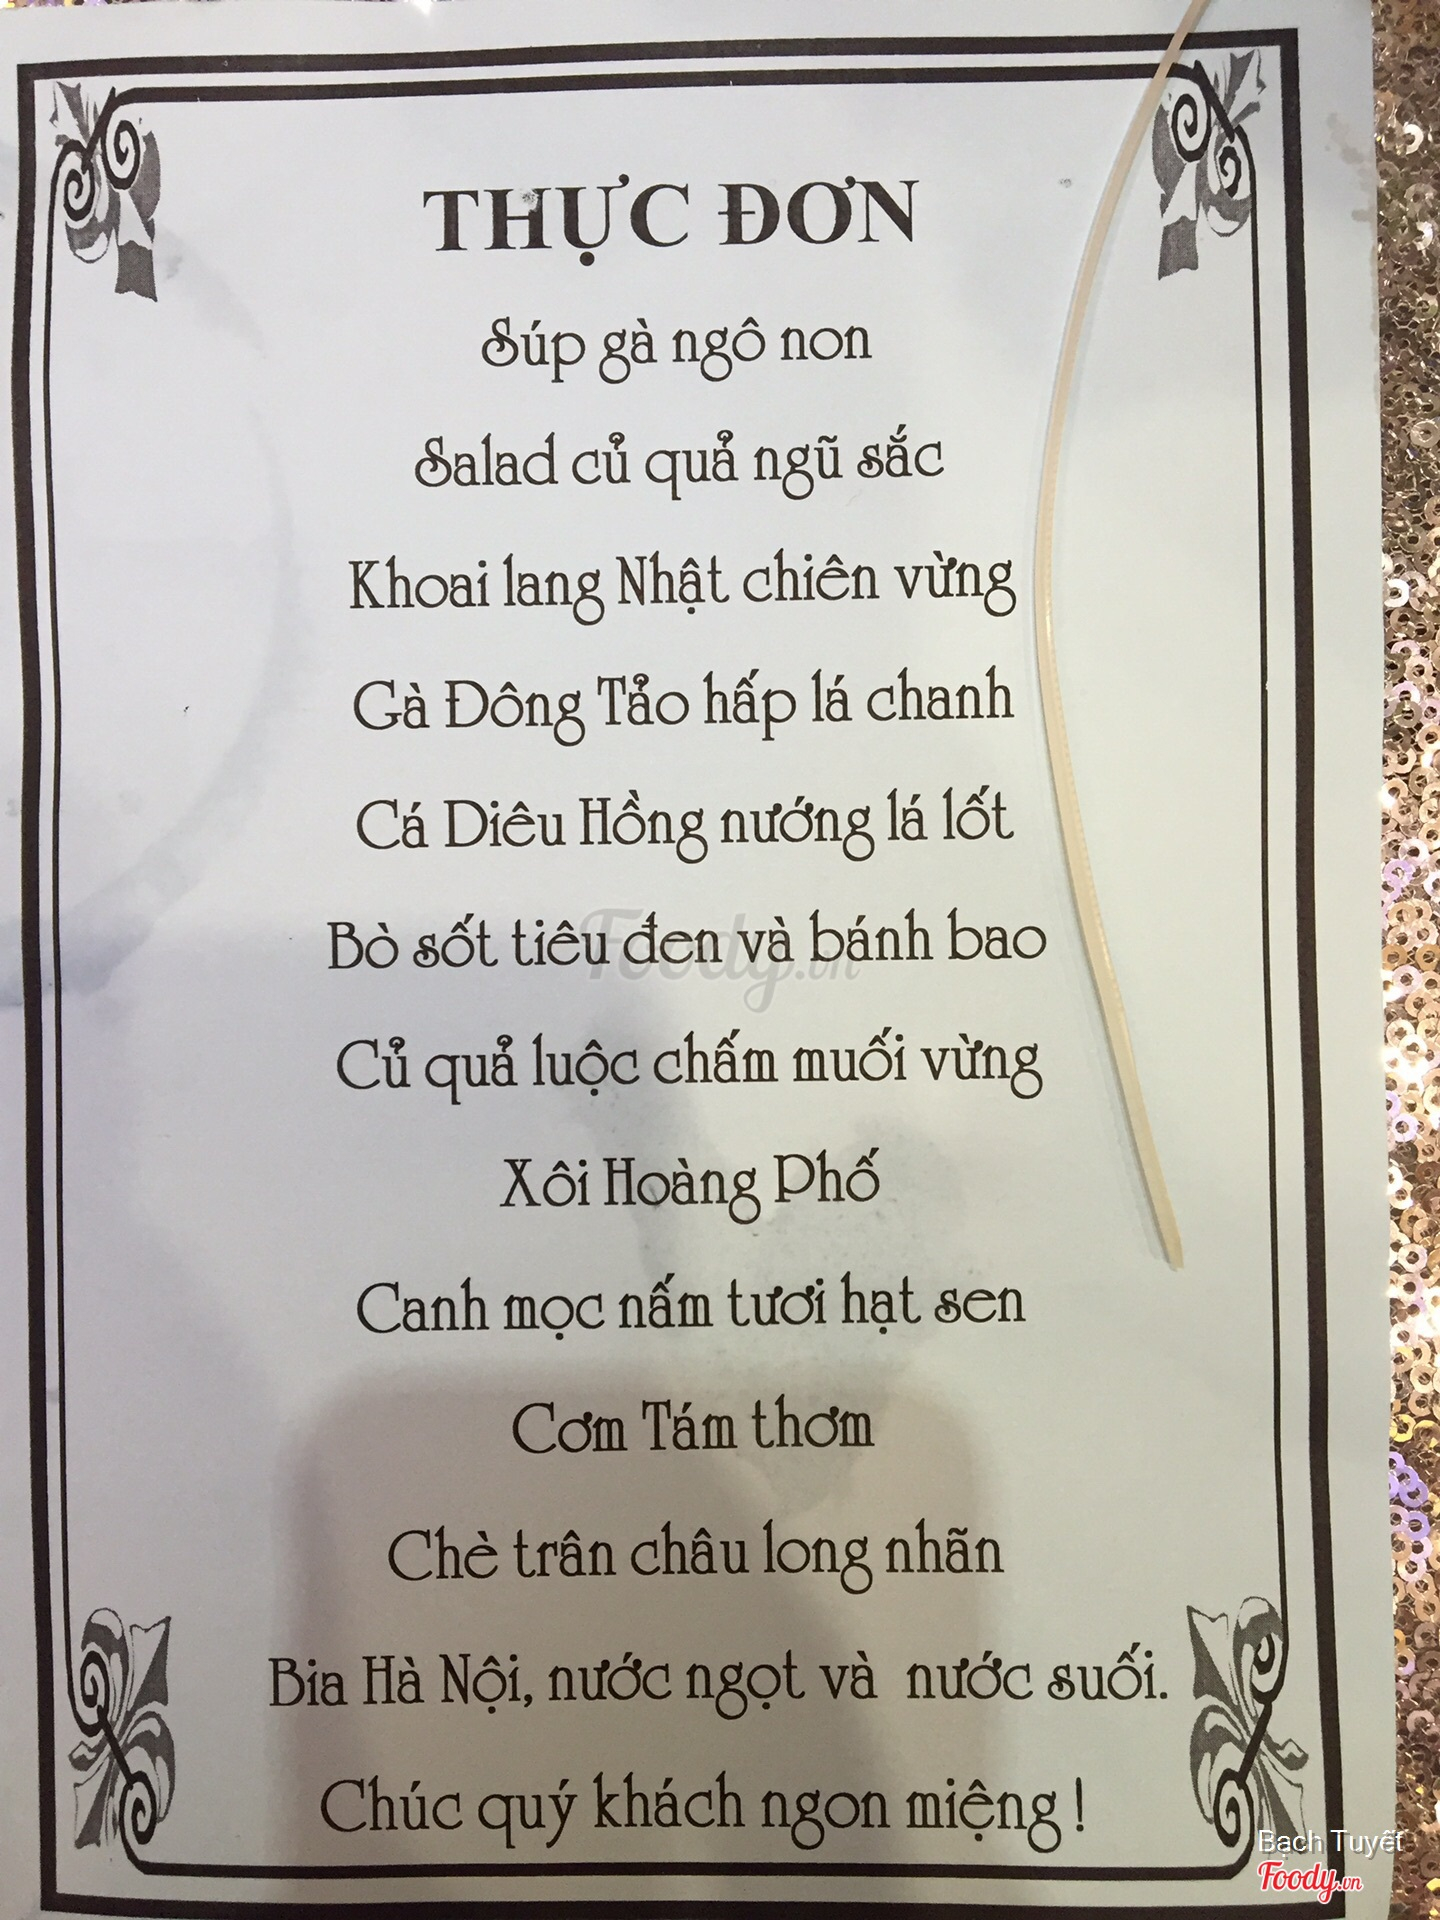 THỰC ĐƠN
Súp gà ngô non
Salad củ quả ngũ sắc
Khoai lang Nhật chiên vừng
Gà Đông Tảo hấp lá chanh
Cá Diêu Hồng nướng lá lốt
Bò sốt tiêu đen và bánh bao
Foody.vn
Củ quả luộc chấm muối vừng
Xôi Hoàng Phố
Canh mọc nấm tươi hạt sen
Cơm Tám thơm
Chè trân châu long nhãn
Bia Hà Nội, nước ngọt và nước suối.
Chúc quý khách ngon miệng !
Bạch Tuyết
Foody.vn